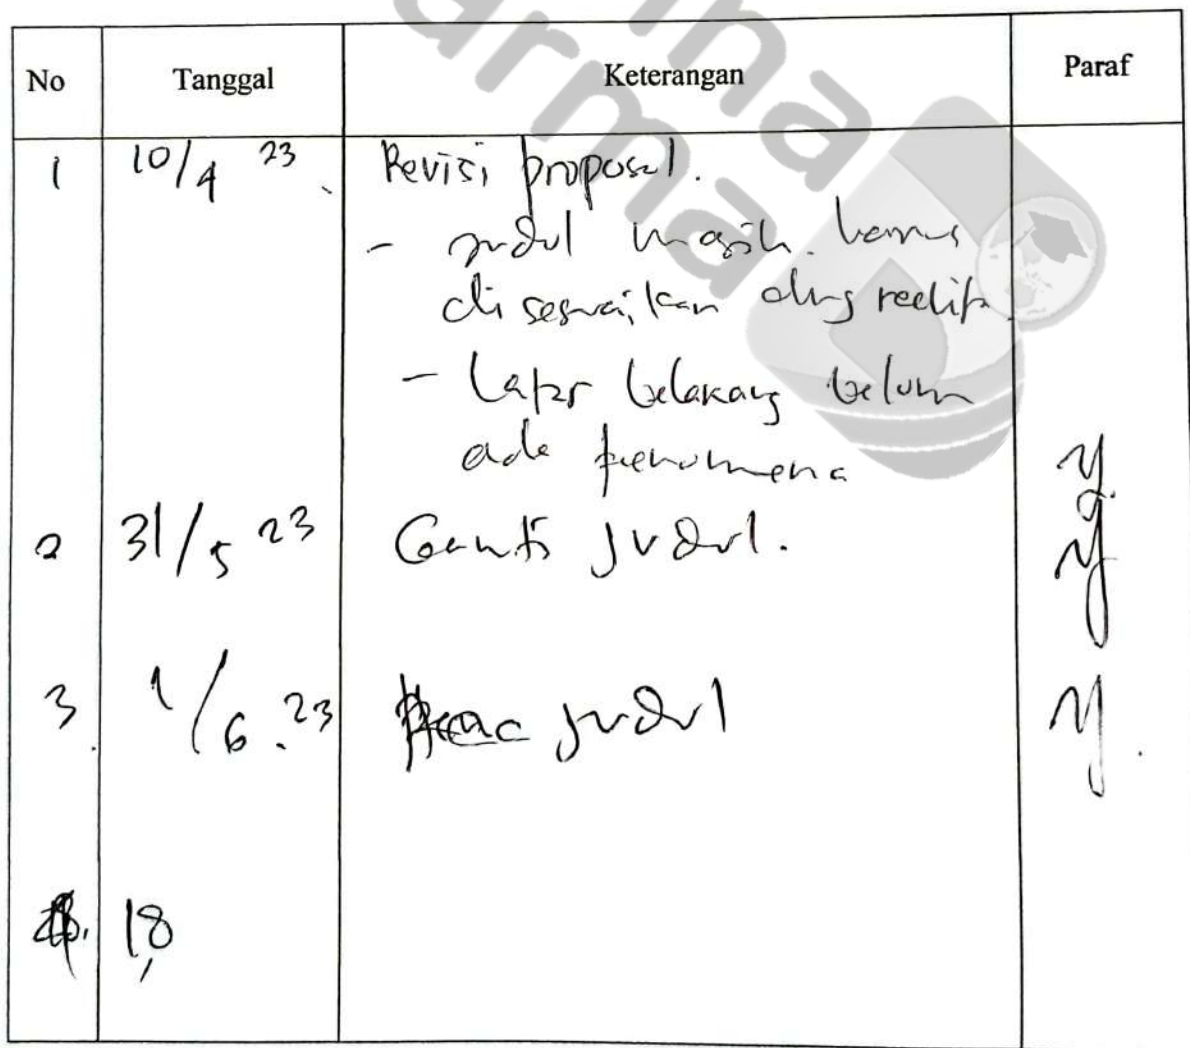 No Tanggal Keterangan Paraf
1 10/4 23 Revisi proposal.
- judul masih harus
disesuaikan dng realita
- Latar belakang belum
ada fenomena
2 31/5 23 Ganti judul.
3. 1/6.23 judul
18